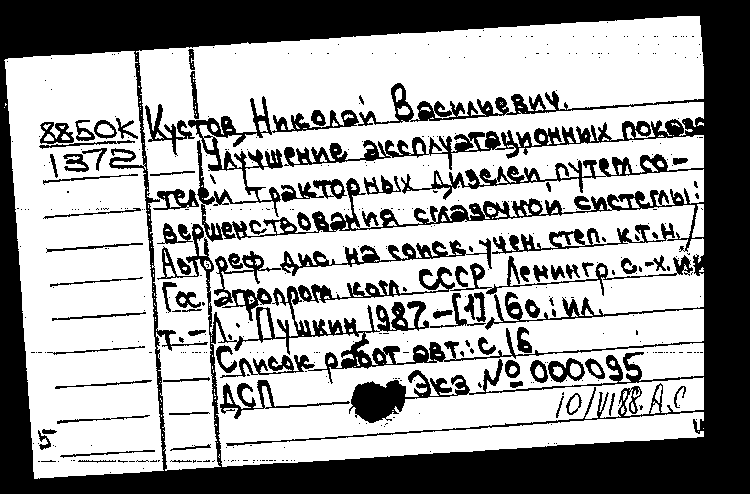 8850К Кустов, Николай Васильевич.
1372 Улучшение эксплуатационных показа-
телей тракторных дизелей путем со-
вершенствования смазочной системы:
Автореф. дис. на соиск. учен. степ. к.т.н. /
Гос. агропром. ком. СССР, Ленингр. с.-х. ин-
т. - Л.; Пушкин, 1987. - [1], 16 с.: ил.
Список работ авт.: с. 16.
ДСП Экз. № 000095
10/VI88. А.С